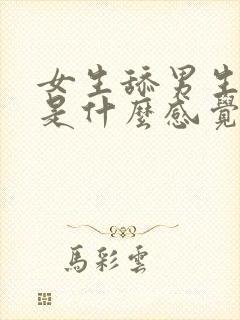 女生舔男生
是什麼感覺
馬彩雲